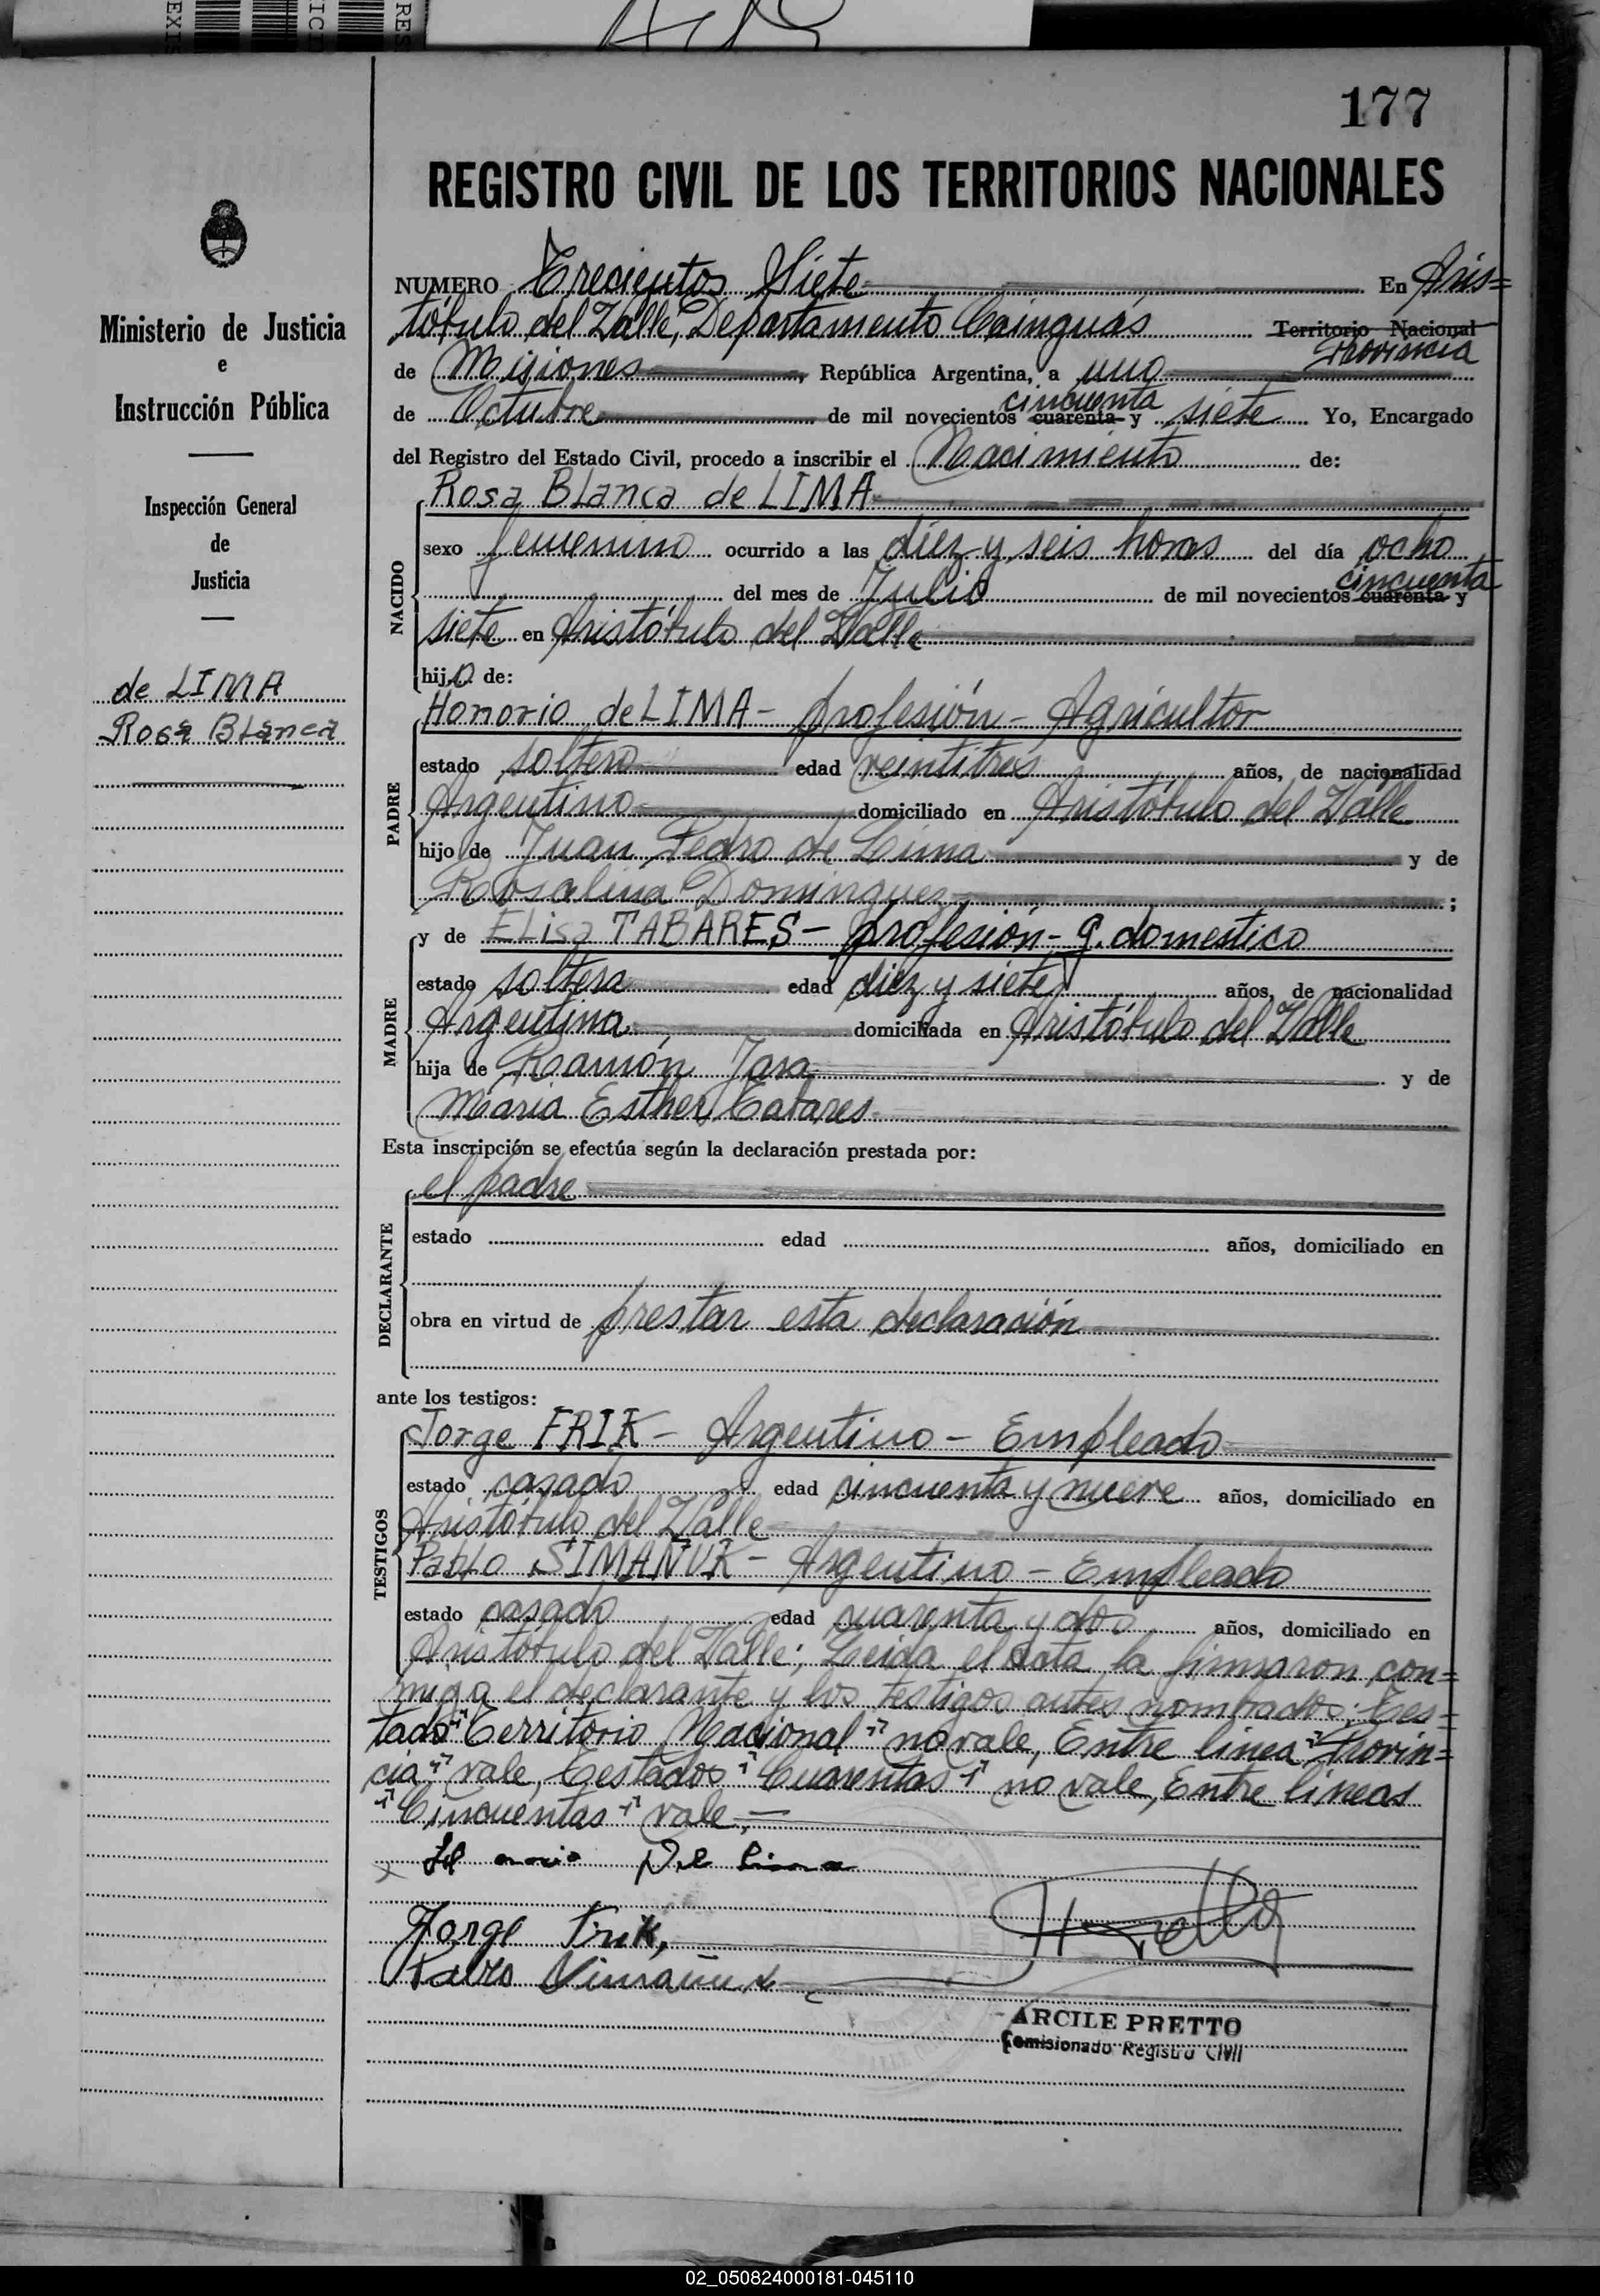 177
REGISTRO CIVIL DE LOS TERRITORIOS NACIONALES
Ministerio de Justicia
e
Instrucción Pública
Inspección General
de
Justicia
de LIMA
Rosa Blanca
NUMERO Trecientos Siete En Aris=
tóbulo del Valle, Departamento Cainguás Territorio Nacional
Provincia
de Misiones, República Argentina, a uno
cincuenta
de Octubre de mil novecientos cuarenta y siete Yo, Encargado
del Registro del Estado Civil, procedo a inscribir el Nacimiento de:
NACIDO
Rosa Blanca de LIMA
sexo femenino ocurrido a las diez y seis horas del día ocho
cincuenta
del mes de Julio de mil novecientos cuarenta y
siete en Aristóbulo del Valle
hija de:
PADRE
Honorio de LIMA - profesión - Agricultor
estado soltero edad veintitres años, de nacionalidad
Argentino domiciliado en Aristóbulo del Valle
hijo de Juan Pedro de Lima y de
Rosalina Dominguez ;
MADRE
y de Elisa TABARES - profesión - q. domestico
estado soltera edad diez y siete años, de nacionalidad
Argentina domiciliada en Aristóbulo del Valle
hija de Ramón Jara y de
Maria Esther Tabares
Esta inscripción se efectúa según la declaración prestada por:
DECLARANTE
el padre
estado edad años, domiciliado en
obra en virtud de prestar esta declaración
ante los testigos:
TESTIGOS
Jorge FRIK - Argentino - Empleado
estado casado edad cincuenta y nueve años, domiciliado en
Aristóbulo del Valle
Pablo SIMAÑUK - Argentino - Empleado
estado casado edad cuarenta y dos años, domiciliado en
Aristóbulo del Valle; Leida el acta la firmaron con=
migo el declarante y los testigos antes nombrados; Tes=
tado "Territorio Nacional" no vale, Entre linea "Provin=
cia" vale, Testados "Cuarentas" no vale, Entre líneas
"Cincuentas" vale,
Honorio De Lima
Jorge Frik,
Pablo Simañuk
ARCILE PRETTO
Comisionado Registro Civil
02_050824000181-045110